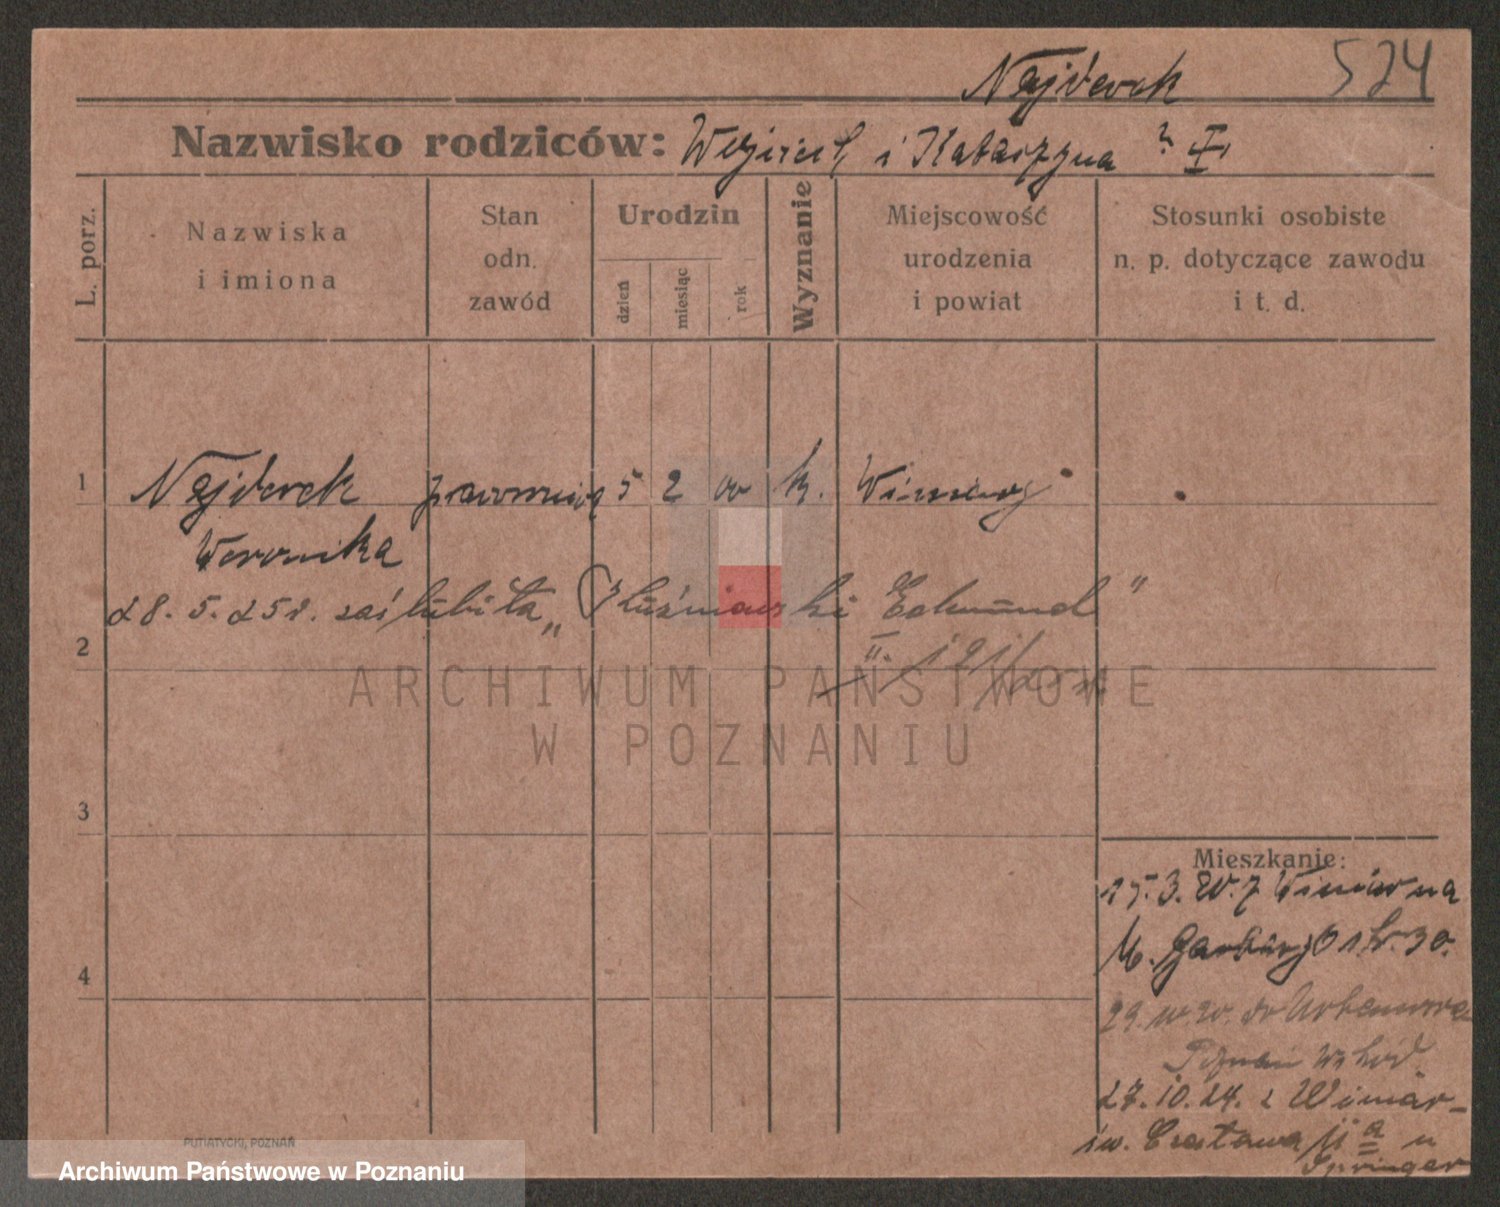 Najderek 524
Nazwisko rodziców: Wojciech i Katarzyna ? I
L. porz.
Nazwiska
i imiona
Stan
odn.
zawód
Urodzin
dzień
miesiąc
rok
Wyznanie
Miejscowość
urodzenia
i powiat
Stosunki osobiste
n. p. dotyczące zawodu
i t. d.
1 Najderek 5 2 00 k. Winiary
Weronika
28. 5. 25 r. zaślubiła „Kluźniawski Edmund"
2
3
4
Mieszkanie:
15.3. 20. z Winiar na
M. Garbary
29. 10. 20. do
Poznań Wschód
27.10.24. z Winiar
św. Czesława 11 a u
Springer
PUTIATYCKI, POZNAŃ
ARCHIWUM PAŃSTWOWE
W POZNANIU
Archiwum Państwowe w Poznaniu